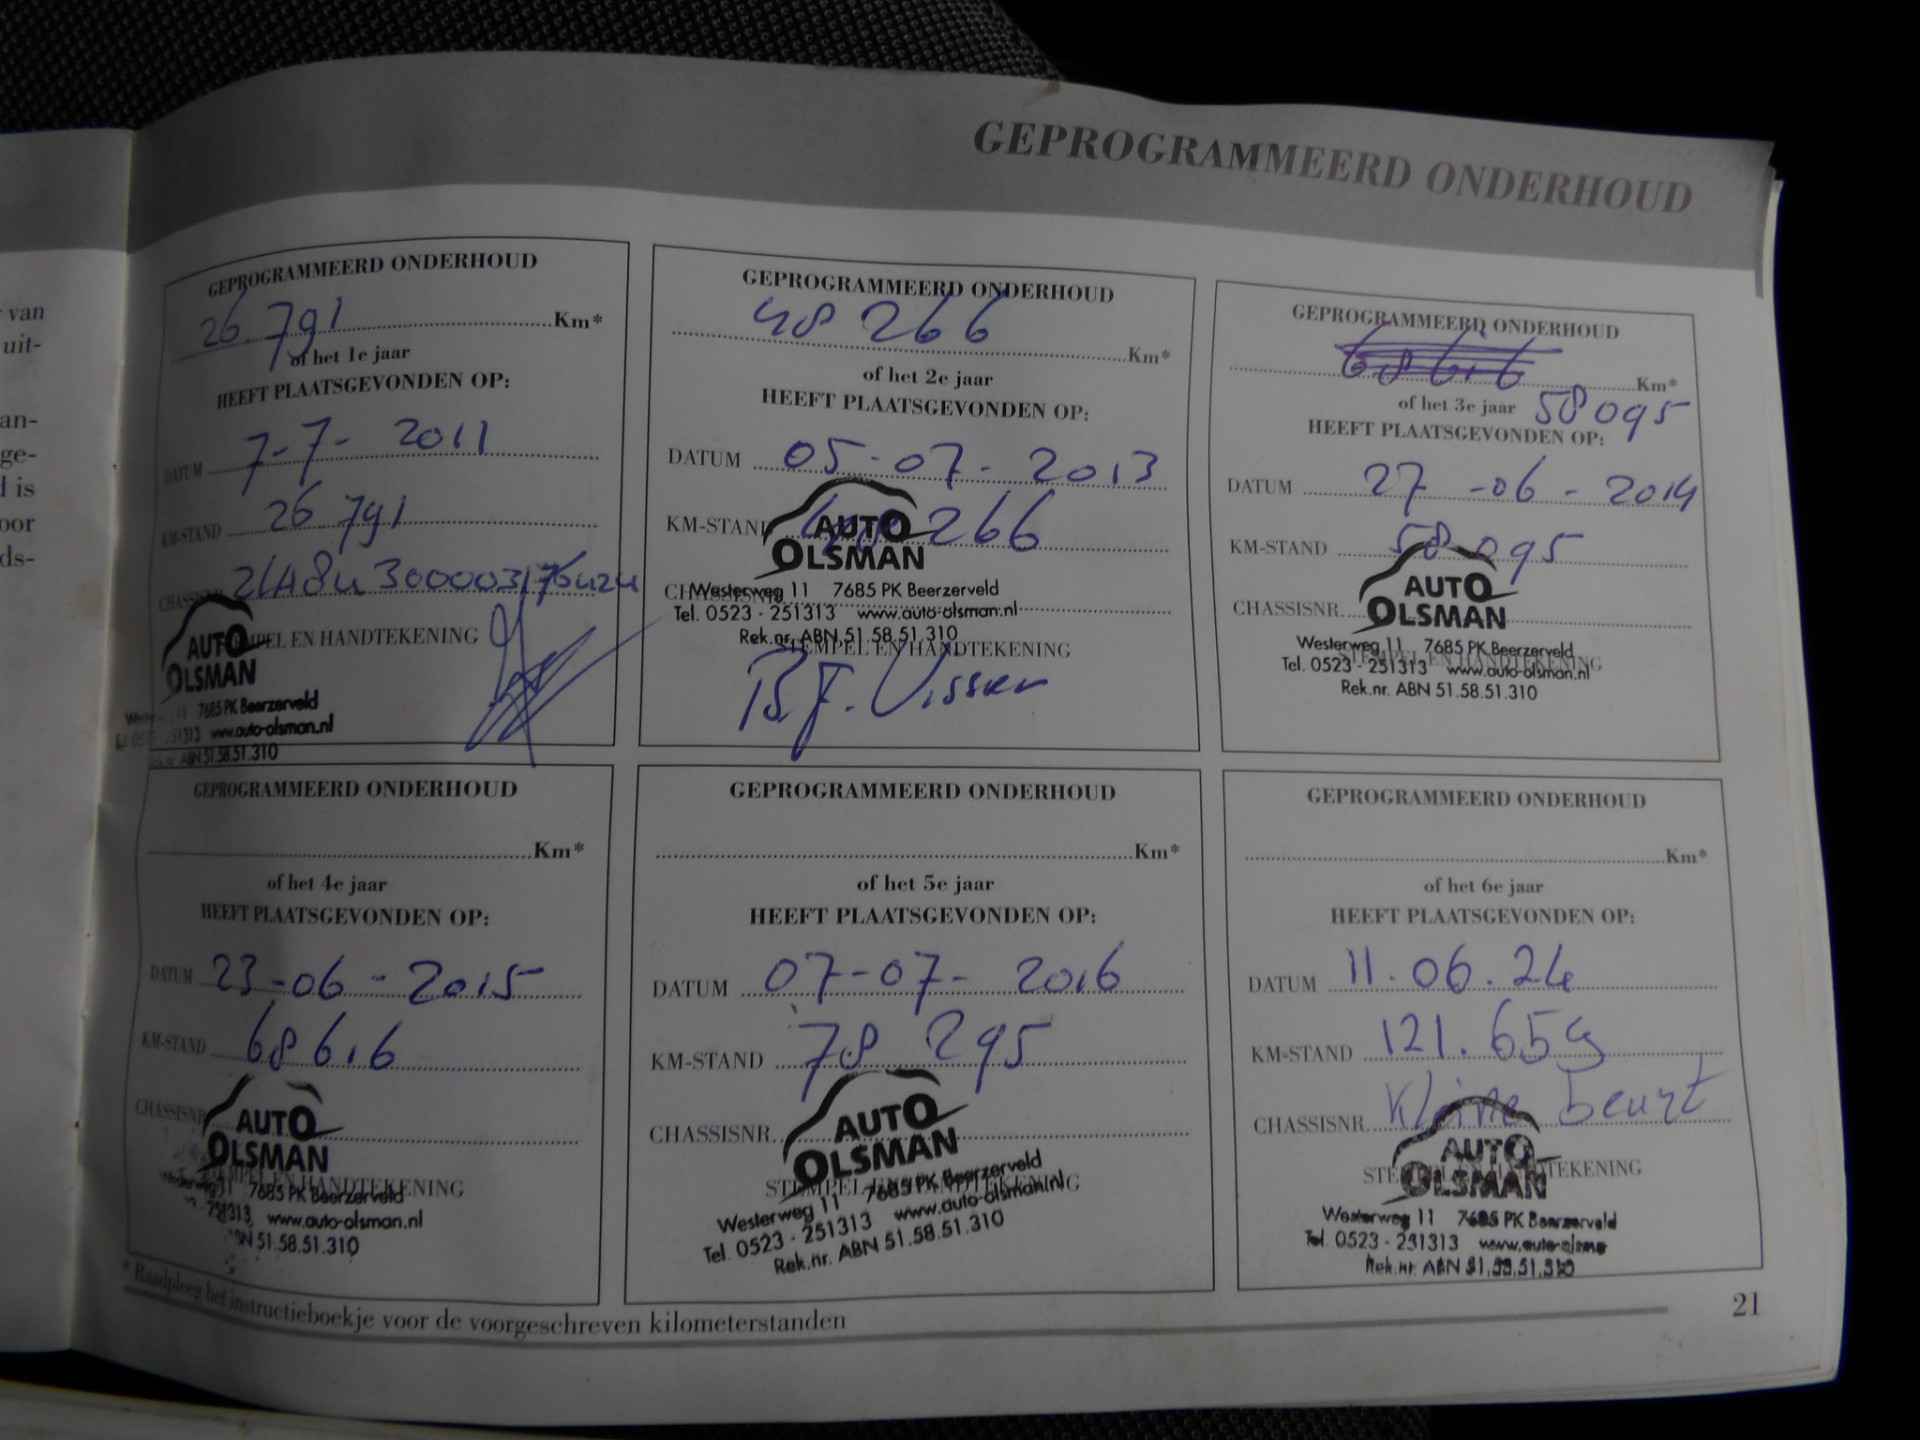 van
uit-
an-
ge-
is
oor
ds-
GEPROGRAMMEERD ONDERHOUD
GEPROGRAMMEERD ONDERHOUD
26.791 Km*
of het 1e jaar
HEEFT PLAATSGEVONDEN OP:
DATUM 7-7-2011
KM-STAND 26 791
CHASSISNR.
STEMPEL EN HANDTEKENING
AUTO
OLSMAN
11 7685 PK Beerzerveld
www.auto-olsman.nl
ABN 51.58.51.310
GEPROGRAMMEERD ONDERHOUD
48 266 Km*
of het 2e jaar
HEEFT PLAATSGEVONDEN OP:
DATUM 05-07-2013
KM-STAND 48 266
AUTO
OLSMAN
CHASSISNR.
Westerweg 11 7685 PK Beerzerveld
Tel. 0523 - 251313 www.auto-olsman.nl
Rek.nr. ABN 51.58.51.310
STEMPEL EN HANDTEKENING
B.J. Visser
GEPROGRAMMEERD ONDERHOUD
68616 Km*
of het 3e jaar 58095
HEEFT PLAATSGEVONDEN OP:
DATUM 27-06-2014
KM-STAND 58095
AUTO
OLSMAN
CHASSISNR.
Westerweg 11 7685 PK Beerzerveld
STEMPEL EN HANDTEKENING
Tel. 0523 - 251313 www.auto-olsman.nl
Rek.nr. ABN 51.58.51.310
GEPROGRAMMEERD ONDERHOUD
Km*
of het 4e jaar
HEEFT PLAATSGEVONDEN OP:
DATUM 23-06-2015
KM-STAND 68616
CHASSISNR.
AUTO
OLSMAN
STEMPEL EN HANDTEKENING
7685 PK Beerzerveld
www.auto-olsman.nl
51.58.51.310
GEPROGRAMMEERD ONDERHOUD
Km*
of het 5e jaar
HEEFT PLAATSGEVONDEN OP:
DATUM 07-07-2016
KM-STAND 78 295
CHASSISNR.
AUTO
OLSMAN
STEMPEL EN HANDTEKENING
Westerweg 11 7685 PK Beerzerveld
Tel. 0523 - 251313 www.auto-olsman.nl
Rek.nr. ABN 51.58.51.310
GEPROGRAMMEERD ONDERHOUD
Km*
of het 6e jaar
HEEFT PLAATSGEVONDEN OP:
DATUM 11.06.24
KM-STAND 121.659
CHASSISNR. Kleine beurt
AUTO
OLSMAN
STEMPEL EN HANDTEKENING
Westerweg 11 7685 PK Beerzerveld
Tel. 0523 - 251313 www.auto-olsma
Rek.nr. ABN 51.58.51.310
* Raadpleeg het instructieboekje voor de voorgeschreven kilometerstanden
21